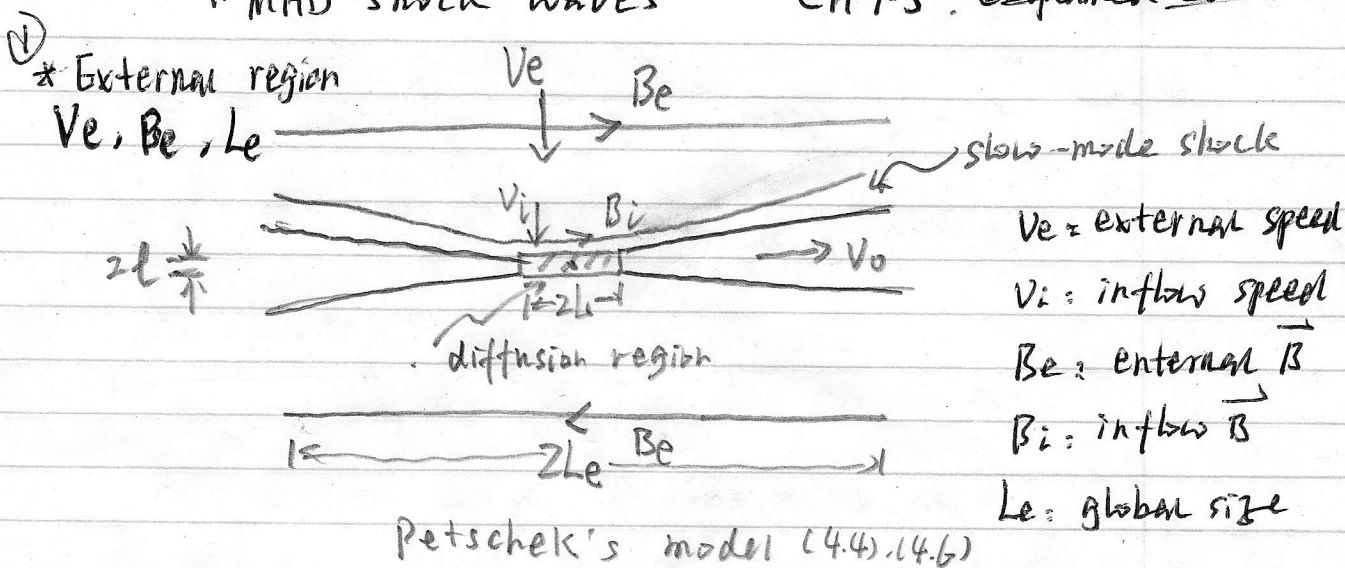 * MHD shock waves CH 1-5.
①
* External region
Ve, Be, Le
Ve
Be
slow-mode shock
Vi
Bi
Vo
2ℓ
2L
diffusion region
Ve = external speed
Vi : inflow speed
Be : enternal B⃗
Bi : inflow B⃗
Le : global size
Be
2Le
Petschek's model (4.4).(4.6)